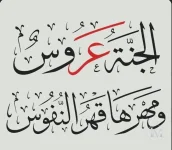 الجنَّةُ عَرُوسٌ
ومَهرُها قَهرُ النُّفُوسِ